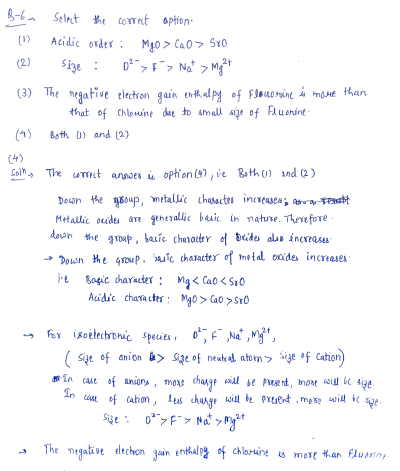 B-6→ Select the correct option.
(1) Acidic order : MgO > CaO > SrO
(2) Size : O²⁻ > F⁻ > Na⁺ > Mg²⁺
(3) The negative electron gain enthalpy of is more than
that of chlorine due to small size of Fluorine.
(4) Both (1) and (2)
(4)
Solⁿ→ The correct answer is option (4), i.e Both (1) and (2)
Down the group, metallic character increases;
Metallic oxides are generallic basic in nature. Therefore.
down the group, basic character of Oxides also increases.
→ Down the group, basic character of metal oxides increases.
i.e Basic character : Mg < CaO < SrO
Acidic character : MgO > CaO > SrO
→ For isoelectronic species, O²⁻, F⁻, Na⁺, Mg²⁺,
( Size of anion > Size of neutral atom > Size of Cation)
In case of anions, more charge will be present, more will be size.
In case of cation, less charge will be present, more will be size.
Size : O²⁻ > F⁻ > Na⁺ > Mg²⁺
→ The negative electron gain enthalpy of chlorine is more than Fluorine.